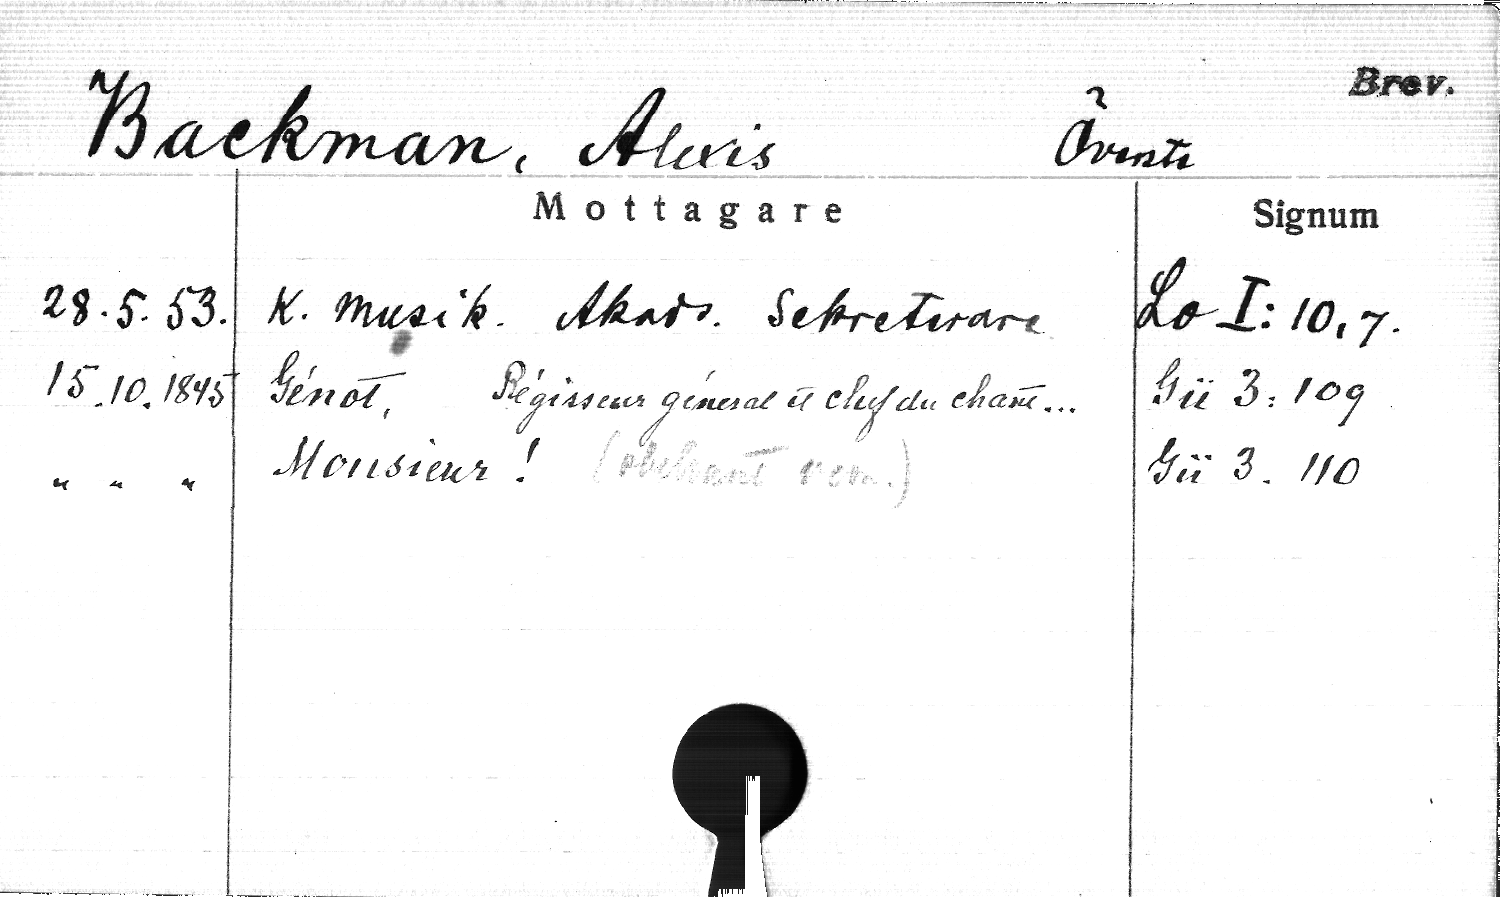 Brev.
Backman, Alexis
Mottagare Signum
28.5.53. K. Musik. Akads. Sekreterare Lo I: 10,7.
15.10.1845 Génot, Régisseur général et chef du chant... Gü 3: 109
" " " Monsieur! (obekant vem.) Gü 3. 110